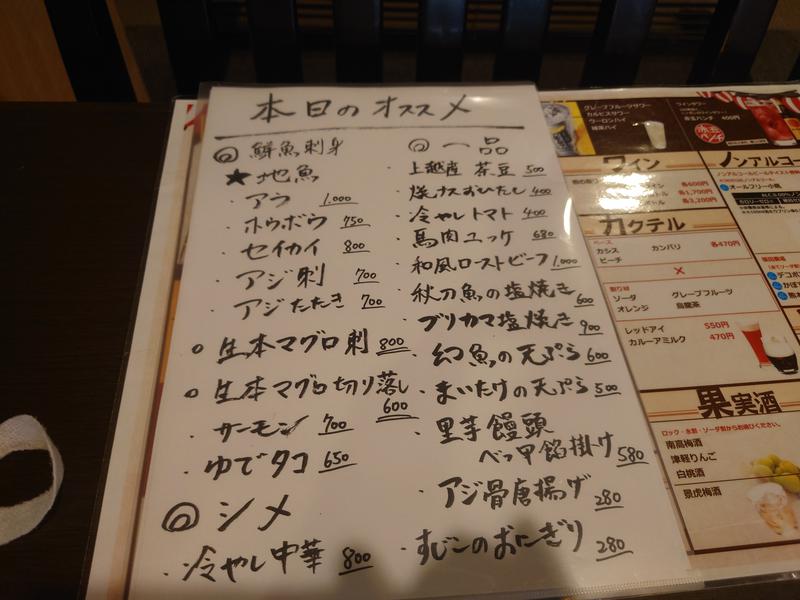 本日のオススメ
◎ 鮮魚刺身
★地魚
・アラ 1,000
・ホウボウ 750
・セイカイ 800
・アジ刺 700
・アジたたき 700
○ 生本マグロ刺 800
○ 生本マグロ切り落し 600
・サーモン 700
・ゆでタコ 650
◎ シメ
・冷やし中華 800
◎ 一品
・上越産 茶豆 500
・焼ナスおひたし 400
・冷やしトマト 400
・馬肉ユッケ 680
・和風ローストビーフ 1,000
・秋刀魚の塩焼き 600
・ブリカマ塩焼き 900
・幻魚の天ぷら 600
・まいたけの天ぷら 500
・里芋饅頭
べっ甲餡掛け 580
・アジ骨唐揚げ 280
・すじこのおにぎり 280
グレープフルーツサワー
カルピスサワー
ウーロンハイ
緑茶ハイ
ワインサワー
赤玉パンチ 400円
赤玉
パンチ
ワイン
各600円
各1,700円
各3,200円
カクテル
ベース
カシス カンパリ 各470円
ピーチ
×
割り材
ソーダ グレープフルーツ
オレンジ 烏龍茶
レッドアイ 550円
カルーアミルク 470円
果実酒
ロック・水割・ソーダ割からお選びください。
南高梅酒
津軽りんご
白桃酒
景虎梅酒
ノンアルコ
オールフリー小瓶